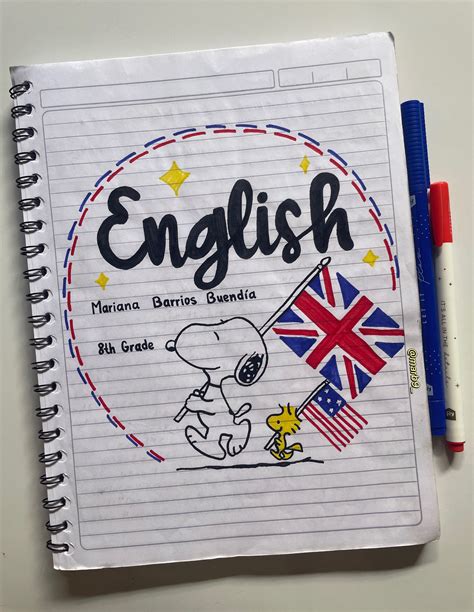 English
Mariana Barrios Buendía
8th Grade
@marb9_